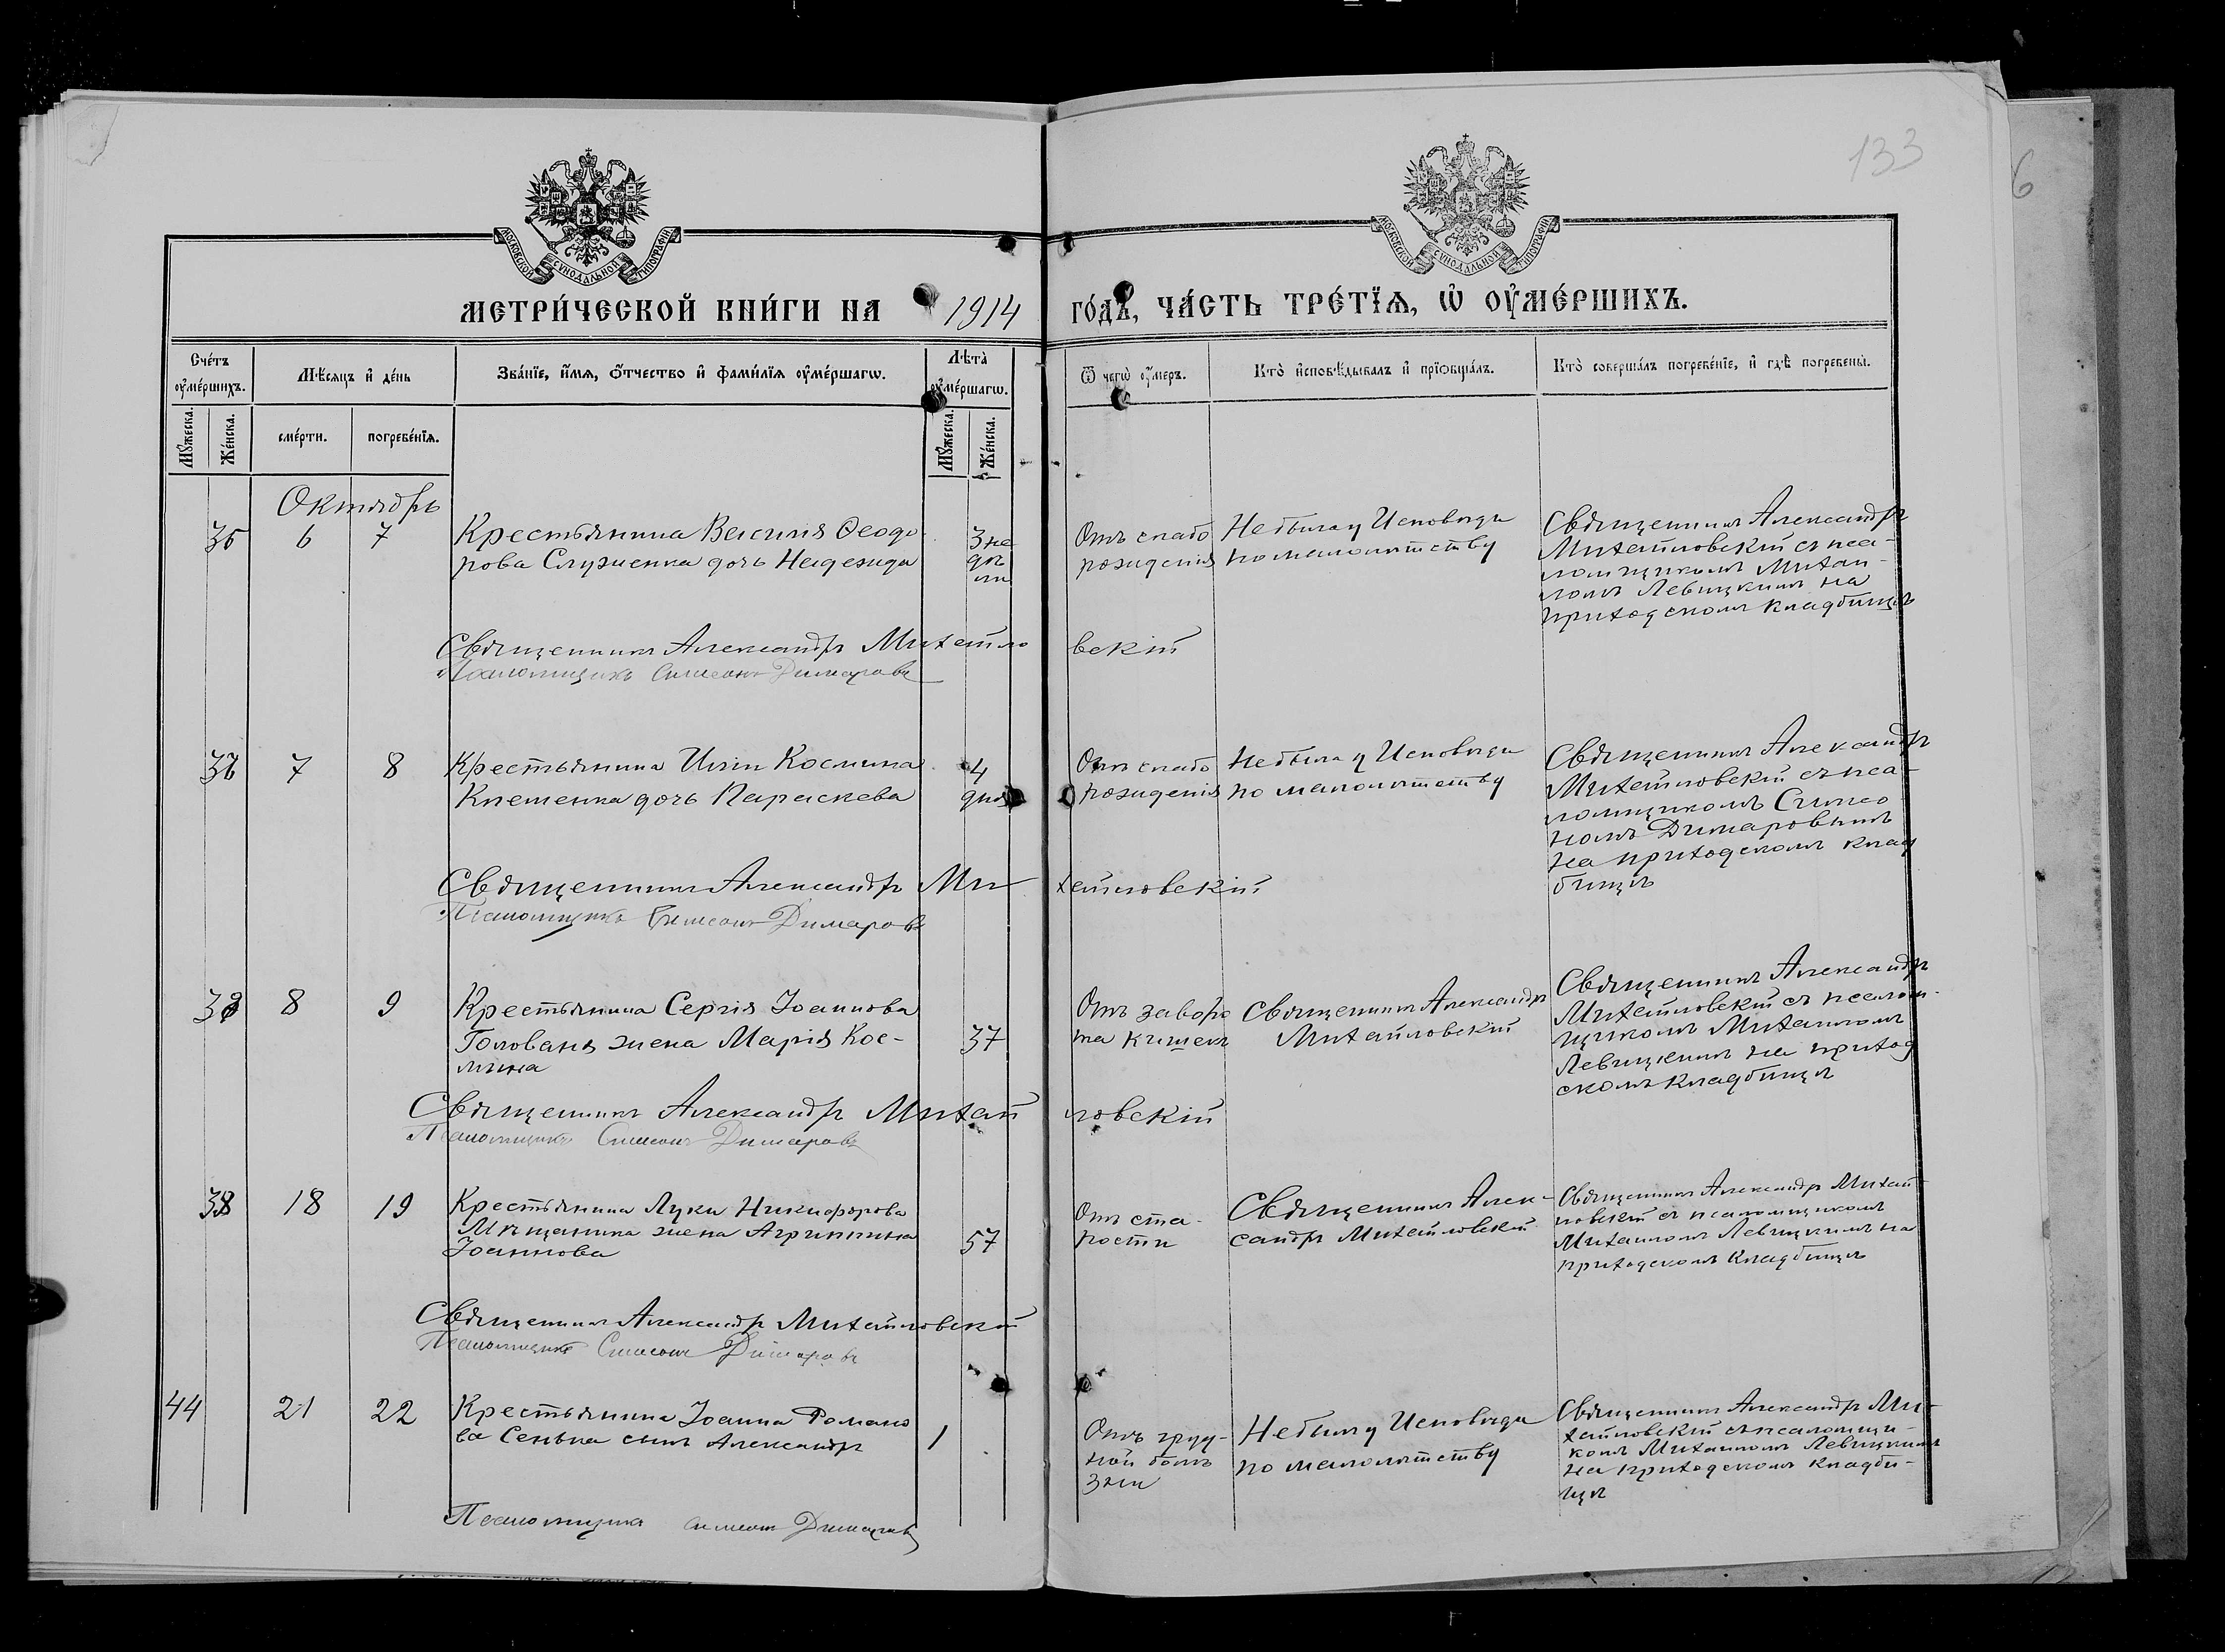 133
6
МОСКОВСКОЙ СУНОДАЛЬНОЙ ТИПОГРАФІИ
МОСКОВСКОЙ СУНОДАЛЬНОЙ ТИПОГРАФІИ
МЕТРИ́ЧЕСКОЙ КНИ́ГИ НА 1914 ГО́ДЪ, ЧА́СТЬ ТРЕ́ТЇѦ, Ѡ҆ ОУ҆МЕ́РШИХЪ.
Сче́тъ оу҆ме́ршихъ.
Мѣ́сяцъ и҆ де́нь
Зва́нїе, и҆́мѧ, ѻ҆́тчество и҆ фами́лїѧ оу҆ме́ршагѡ.
Лѣ́та̀ оу҆ме́ршагѡ.
Ѿ чегѡ̀ оу҆́меръ.
Кто̀ и҆сповѣ́дывалъ и҆ прїѡбща́лъ.
Кто̀ соверша́лъ погребе́нїе, и҆ гдѣ̀ погребены̀.
Мꙋ́жеска.
Же́нска.
сме́рти.
погребе́нїѧ.
Мꙋ́жеска.
Же́нска.
Октябрь
35 6 7
Крестьянина Василія Ѳеодо
рова Служенка дочь Надежда
3 не
дѣ
ли
Отъ слабо
рожденія
Не была у Исповѣди
по малолѣтству
Священникъ Александръ
Михайловскій съ пса-
ломщикомъ Михаи-
ломъ Левицкимъ на
приходскомъ кладбищѣ
Священникъ Александръ Михайло
вскій
Псаломщикъ Симеонъ Димаровъ
36 7 8
Крестьянина Иліи Космина
Клеменка дочь Параскева
4
дня
Отъ слабо
рожденія
Не была у Исповѣди
по малолѣтству
Священникъ Александръ
Михайловскій съ пса-
ломщикомъ Симео
номъ Димаровымъ
на приходскомъ клад
бищѣ
Священникъ Александръ Ми
хайловскій
Псаломщикъ Симеонъ Димаровъ
8 9
Крестьянина Сергія Іоаннова
Голованя жена Марія Кос-
мина
37
Отъ заворо
та кишекъ
Священникъ Александръ
Михайловскій
Священникъ Александръ
Михайловскій съ псалом-
щикомъ Михаиломъ
Левицкимъ на приход
скомъ кладбищѣ
Священникъ Александръ Михай
ловскій
Псаломщикъ Симеонъ Димаровъ
38 18 19
Крестьянина Луки Никифорова
Мѣщанина жена Агрипина
Іоаннова
57
Отъ ста-
рости
Священникъ Алек-
сандръ Михайловскій
Священникъ Александръ Михай
ловскій съ псаломщикомъ
Михаиломъ Левицкимъ на
приходскомъ кладбищѣ
Священникъ Александръ Михайловскій
Псаломщикъ Симеонъ Димаровъ
44 21 22
Крестьянина Іоанна Романо
ва Сенька сынъ Александръ
1
Отъ груд-
ной болѣ
зни
Не былъ у Исповѣди
по малолѣтству
Священникъ Александръ Ми-
хайловскій съ псаломщи-
комъ Михаиломъ Левицкимъ
на приходскомъ кладби-
щѣ
Псаломщикъ Симеонъ Димаровъ